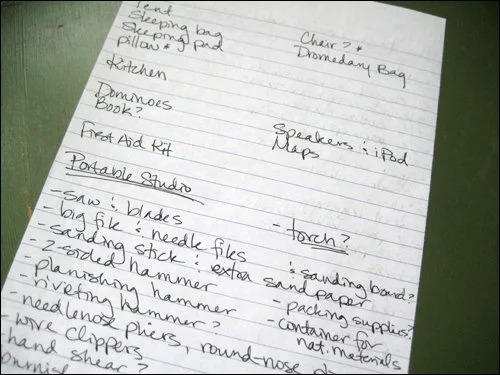 Tent
Sleeping bag
Sleeping pad
pillow *
Kitchen
Dominoes
Book?
First Aid Kit
Chair? *
Dromedary Bag
Speakers & iPod
Maps
Portable Studio
- saw & blades
- big file & needle files
- sanding stick & extra sand paper
- 2-sided hammer
- planishing hammer
- riveting hammer?
- needlenose pliers, round-nose
- wire clippers
- hand shear?
- torch?
& sanding board?
- packing supplies?
- container for
nat. materials